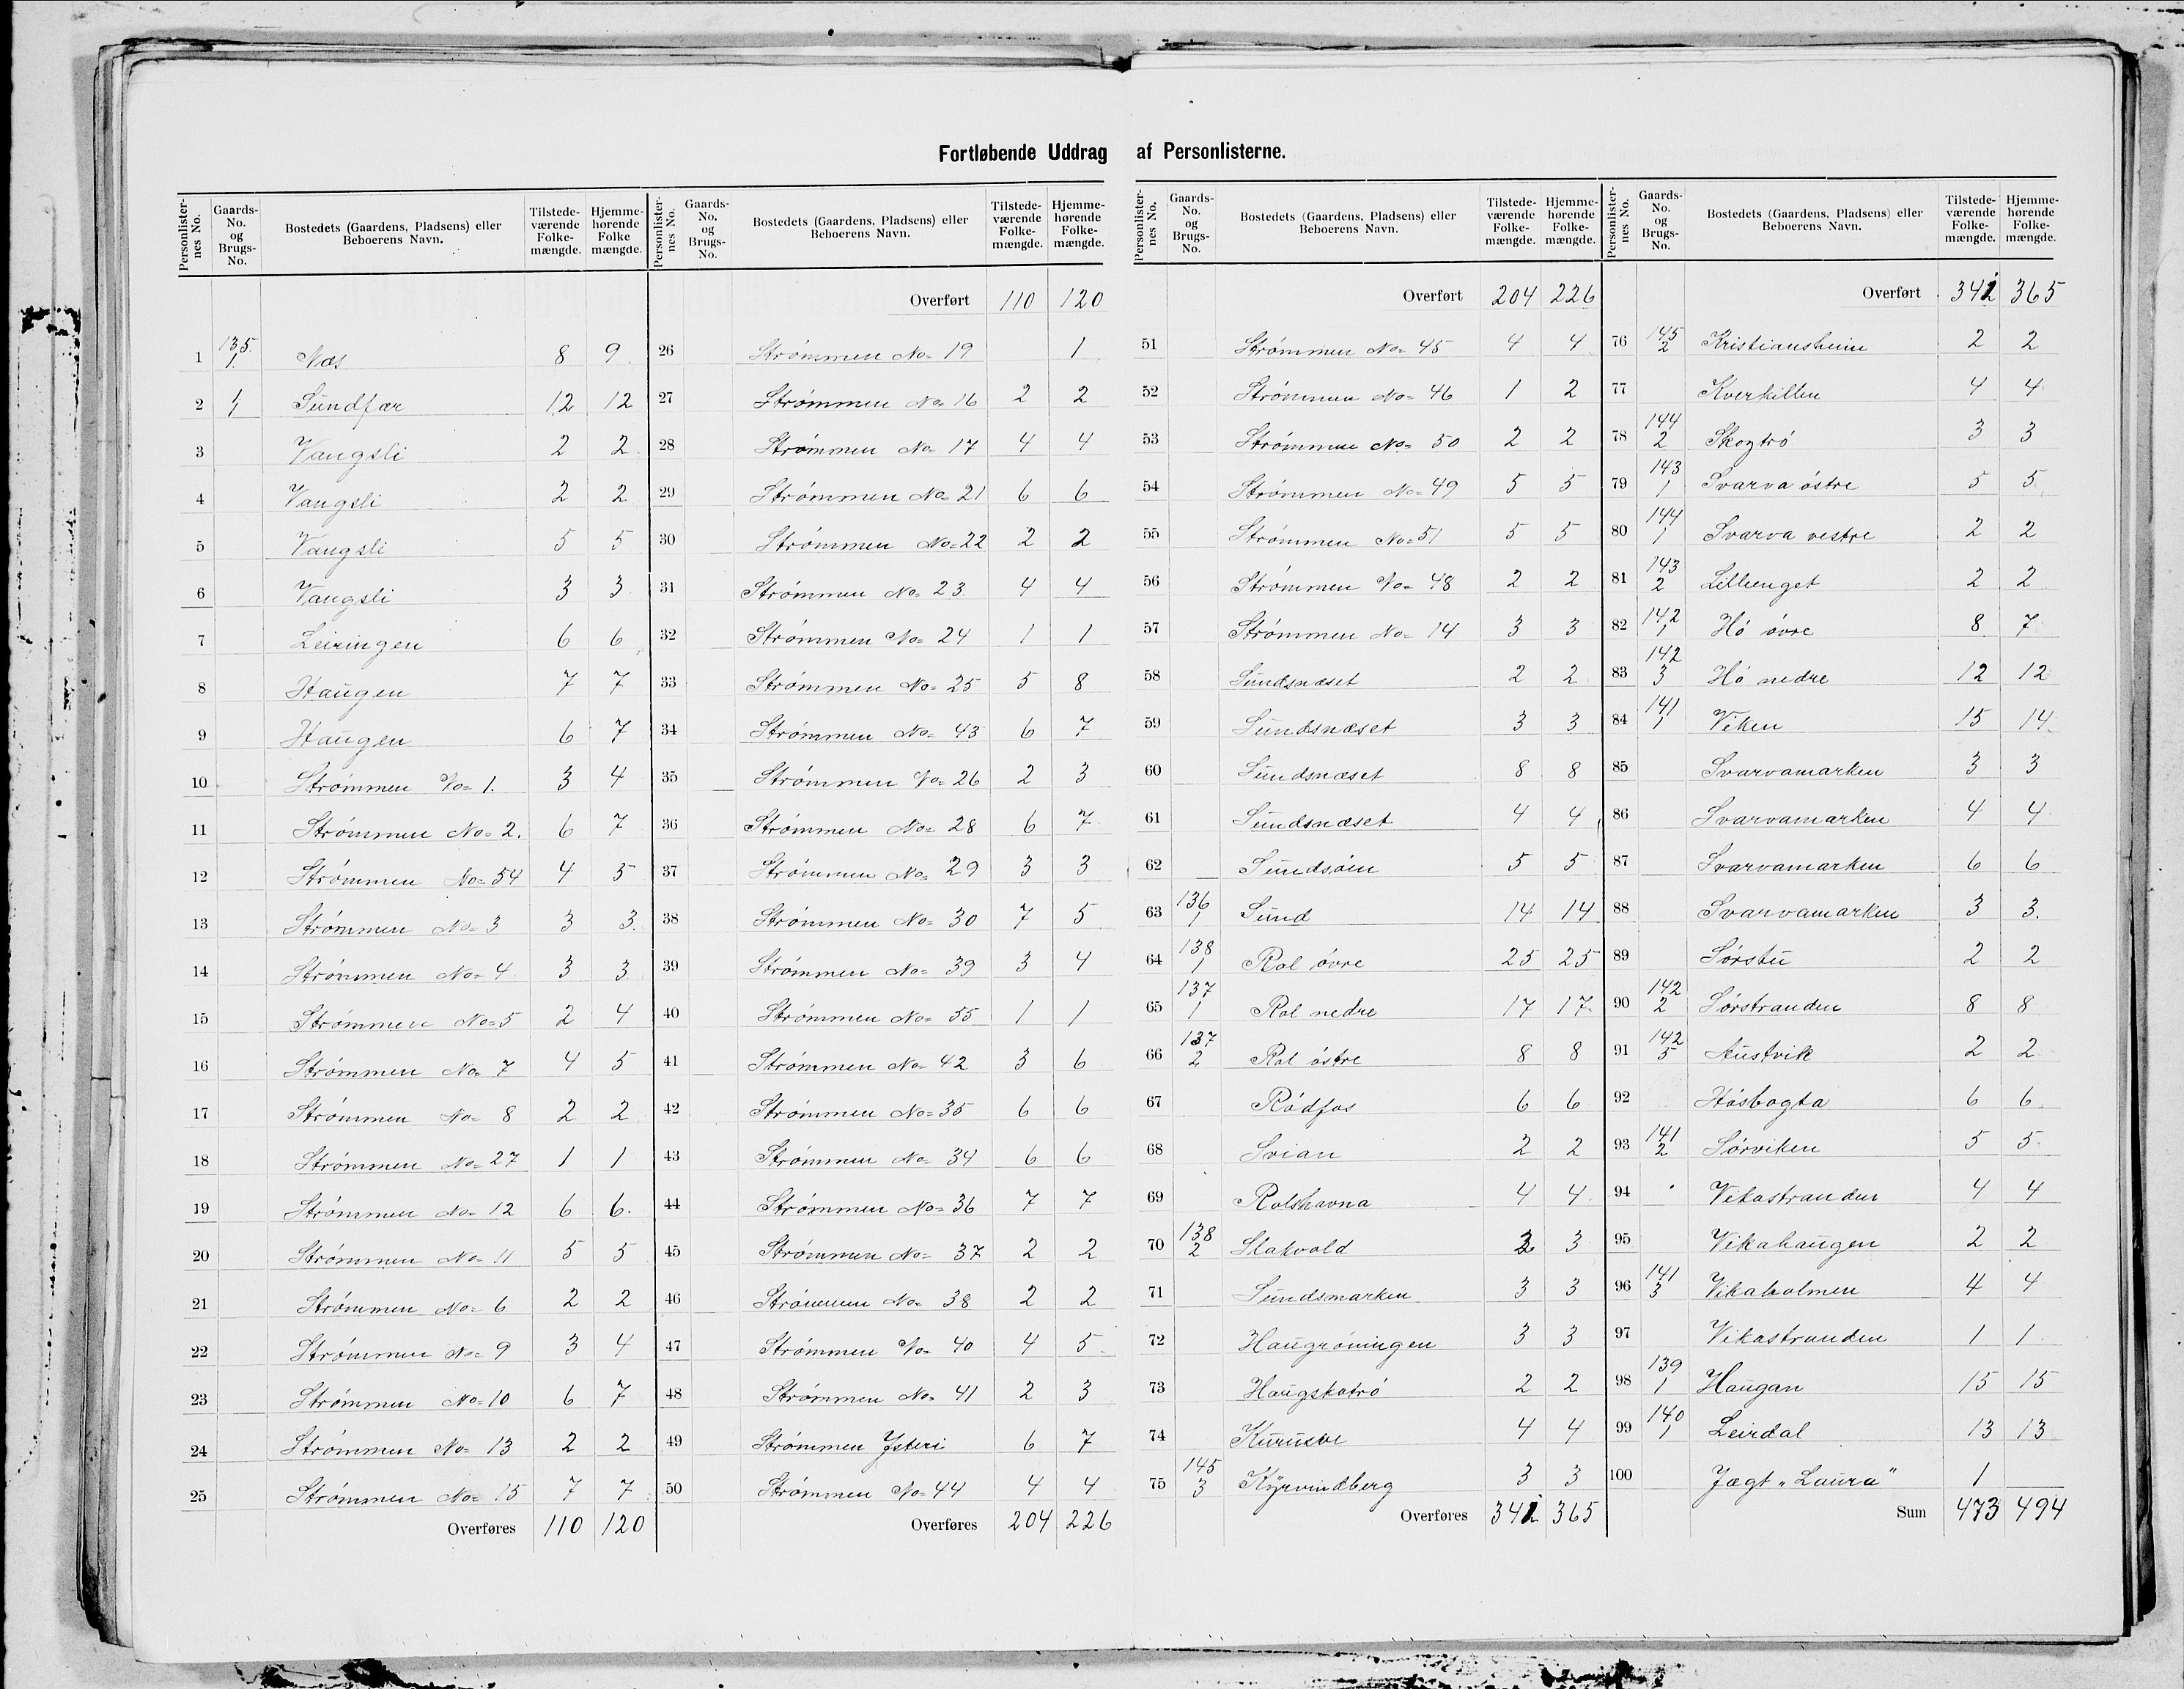 Fortløbende Uddrag af Personlisterne.
Personlisternes No. | Gaards-No. og Brugs-No. | Bostedets (Gaardens, Pladsens) eller Beboerens Navn. | Tilstedeværende Folkemængde. | Hjemmehørende Folkemængde.
1 135/1 Næs 8 9
2 1/1 Sundfær 12 12
3 Vangsli 2 2
4 Vangsli 2 2
5 Vangsli 5 5
6 Vangsli 3 3
7 Leiringen 6 6
8 Haugen 7 7
9 Haugen 6 7
10 Strømmen No 1. 3 4
11 Strømmen No 2. 6 7
12 Strømmen No 54 4 5
13 Strømmen No 3 3 3.
14 Strømmen No 4 3 3
15 Strømmen No 5 2 4
16 Strømmen No 7 4 5
17 Strømmen No 8 2 2
18 Strømmen No 27 1 1
19 Strømmen No 12 6 6.
20 Strømmen No 11 5 5
21 Strømmen No 6 2 2
22 Strømmen No 9 3 4
23 Strømmen No 10 6 7
24 Strømmen No 13 2 2
25 Strømmen No 15 7 7
Overføres 110 120
Personlisternes No. | Gaards-No. og Brugs-No. | Bostedets (Gaardens, Pladsens) eller Beboerens Navn. | Tilstedeværende Folkemængde. | Hjemmehørende Folkemængde.
Overført 110 120
26 Strømmen No 19 1
27 Strømmen No 16 2 2
28 Strømmen No 17 4 4
29 Strømmen No 21 6 6
30 Strømmen No 22 2 2
31 Strømmen No 23 4 4
32 Strømmen No 24 1 1
33 Strømmen No 25 5 8
34 Strømmen No 43 6 7
35 Strømmen No 26 2 3
36 Strømmen No 28 6 7
37 Strømmen No 29 3 3
38 Strømmen No 30 7 5
39 Strømmen No 39 3 4
40 Strømmen No 55 1 1
41 Strømmen No 42 3 6
42 Strømmen No 35 6 6
43 Strømmen No 34 6 6
44 Strømmen No 36 7 7
45 Strømmen No 37 2 2
46 Strømmen No 38 2 2
47 Strømmen No 40 4 5
48 Strømmen No 41 2 3
49 Strømmen Ysteri 6 7
50 Strømmen No 44 4 4
Overføres 204 226
Personlisternes No. | Gaards-No. og Brugs-No. | Bostedets (Gaardens, Pladsens) eller Beboerens Navn. | Tilstedeværende Folkemængde. | Hjemmehørende Folkemængde.
Overført 204 226
51 Strømmen No 45 4 4
52 Strømmen No 46 1 2
53 Strømmen No 50 2 2
54 Strømmen No 49 5 5
55 Strømmen No 51 5 5
56 Strømmen No 48 2 2
57 Strømmen No 14 3 3
58 Sundsnæset 2 2
59 Sundsnæset 3 3
60 Sundsnæset 8 8
61 Sundsnæset 4 4
62 Sundsøien 5 5
63 136/1 Sund 14 14
64 138/1 Rol øvre 25 25
65 137/1 Rol nedre 17 17
66 137/2 Rol østre 8 8
67 Rødfos 6 6
68 Svian 2 2
69 Rolshavna 4 4
70 138/2 Slakvold 3 3
71 Sundsmarken 3 3
72 Haugrøningen 3 3
73 Haugskatrø 2 2
74 4 4
75 145/3 Kyrvindberg 3 3
Overføres 342 365
Personlisternes No. | Gaards-No. og Brugs-No. | Bostedets (Gaardens, Pladsens) eller Beboerens Navn. | Tilstedeværende Folkemængde. | Hjemmehørende Folkemængde.
Overført 342 365
76 145/2 Kristiansheim 2 2
77 Kverkillen 4 4
78 144/2 Skogtrø 3 3
79 143/1 Svarva østre 5 5
80 144/1 Svarva vestre 2 2
81 143/2 Lillienget 2 2
82 142/1 Hó øvre 8 7
83 142/3 Hó nedre 12 12
84 141/1 Viken 15 14
85 Svarvamarken 3 3
86 Svarvamarken 4 4
87 Svarvamarken 6 6
88 Svarvamarken 3 3.
89 Sørstu 2 2
90 142/2 Sørstranden 8 8
91 142/5 Austvik 2 2
92 Høsbogta 6 6
93 141/2 Sørviken 5 5
94 Vikastranden 4 4
95 Vikahaugen 2 2
96 141/3 Vikaholmen 4 4
97 Vikastranden 1 1
98 139/1 Haugan 15 15
99 140/1 Leirdal 13 13
100 Jægt „Laura" 1
Sum 473 494